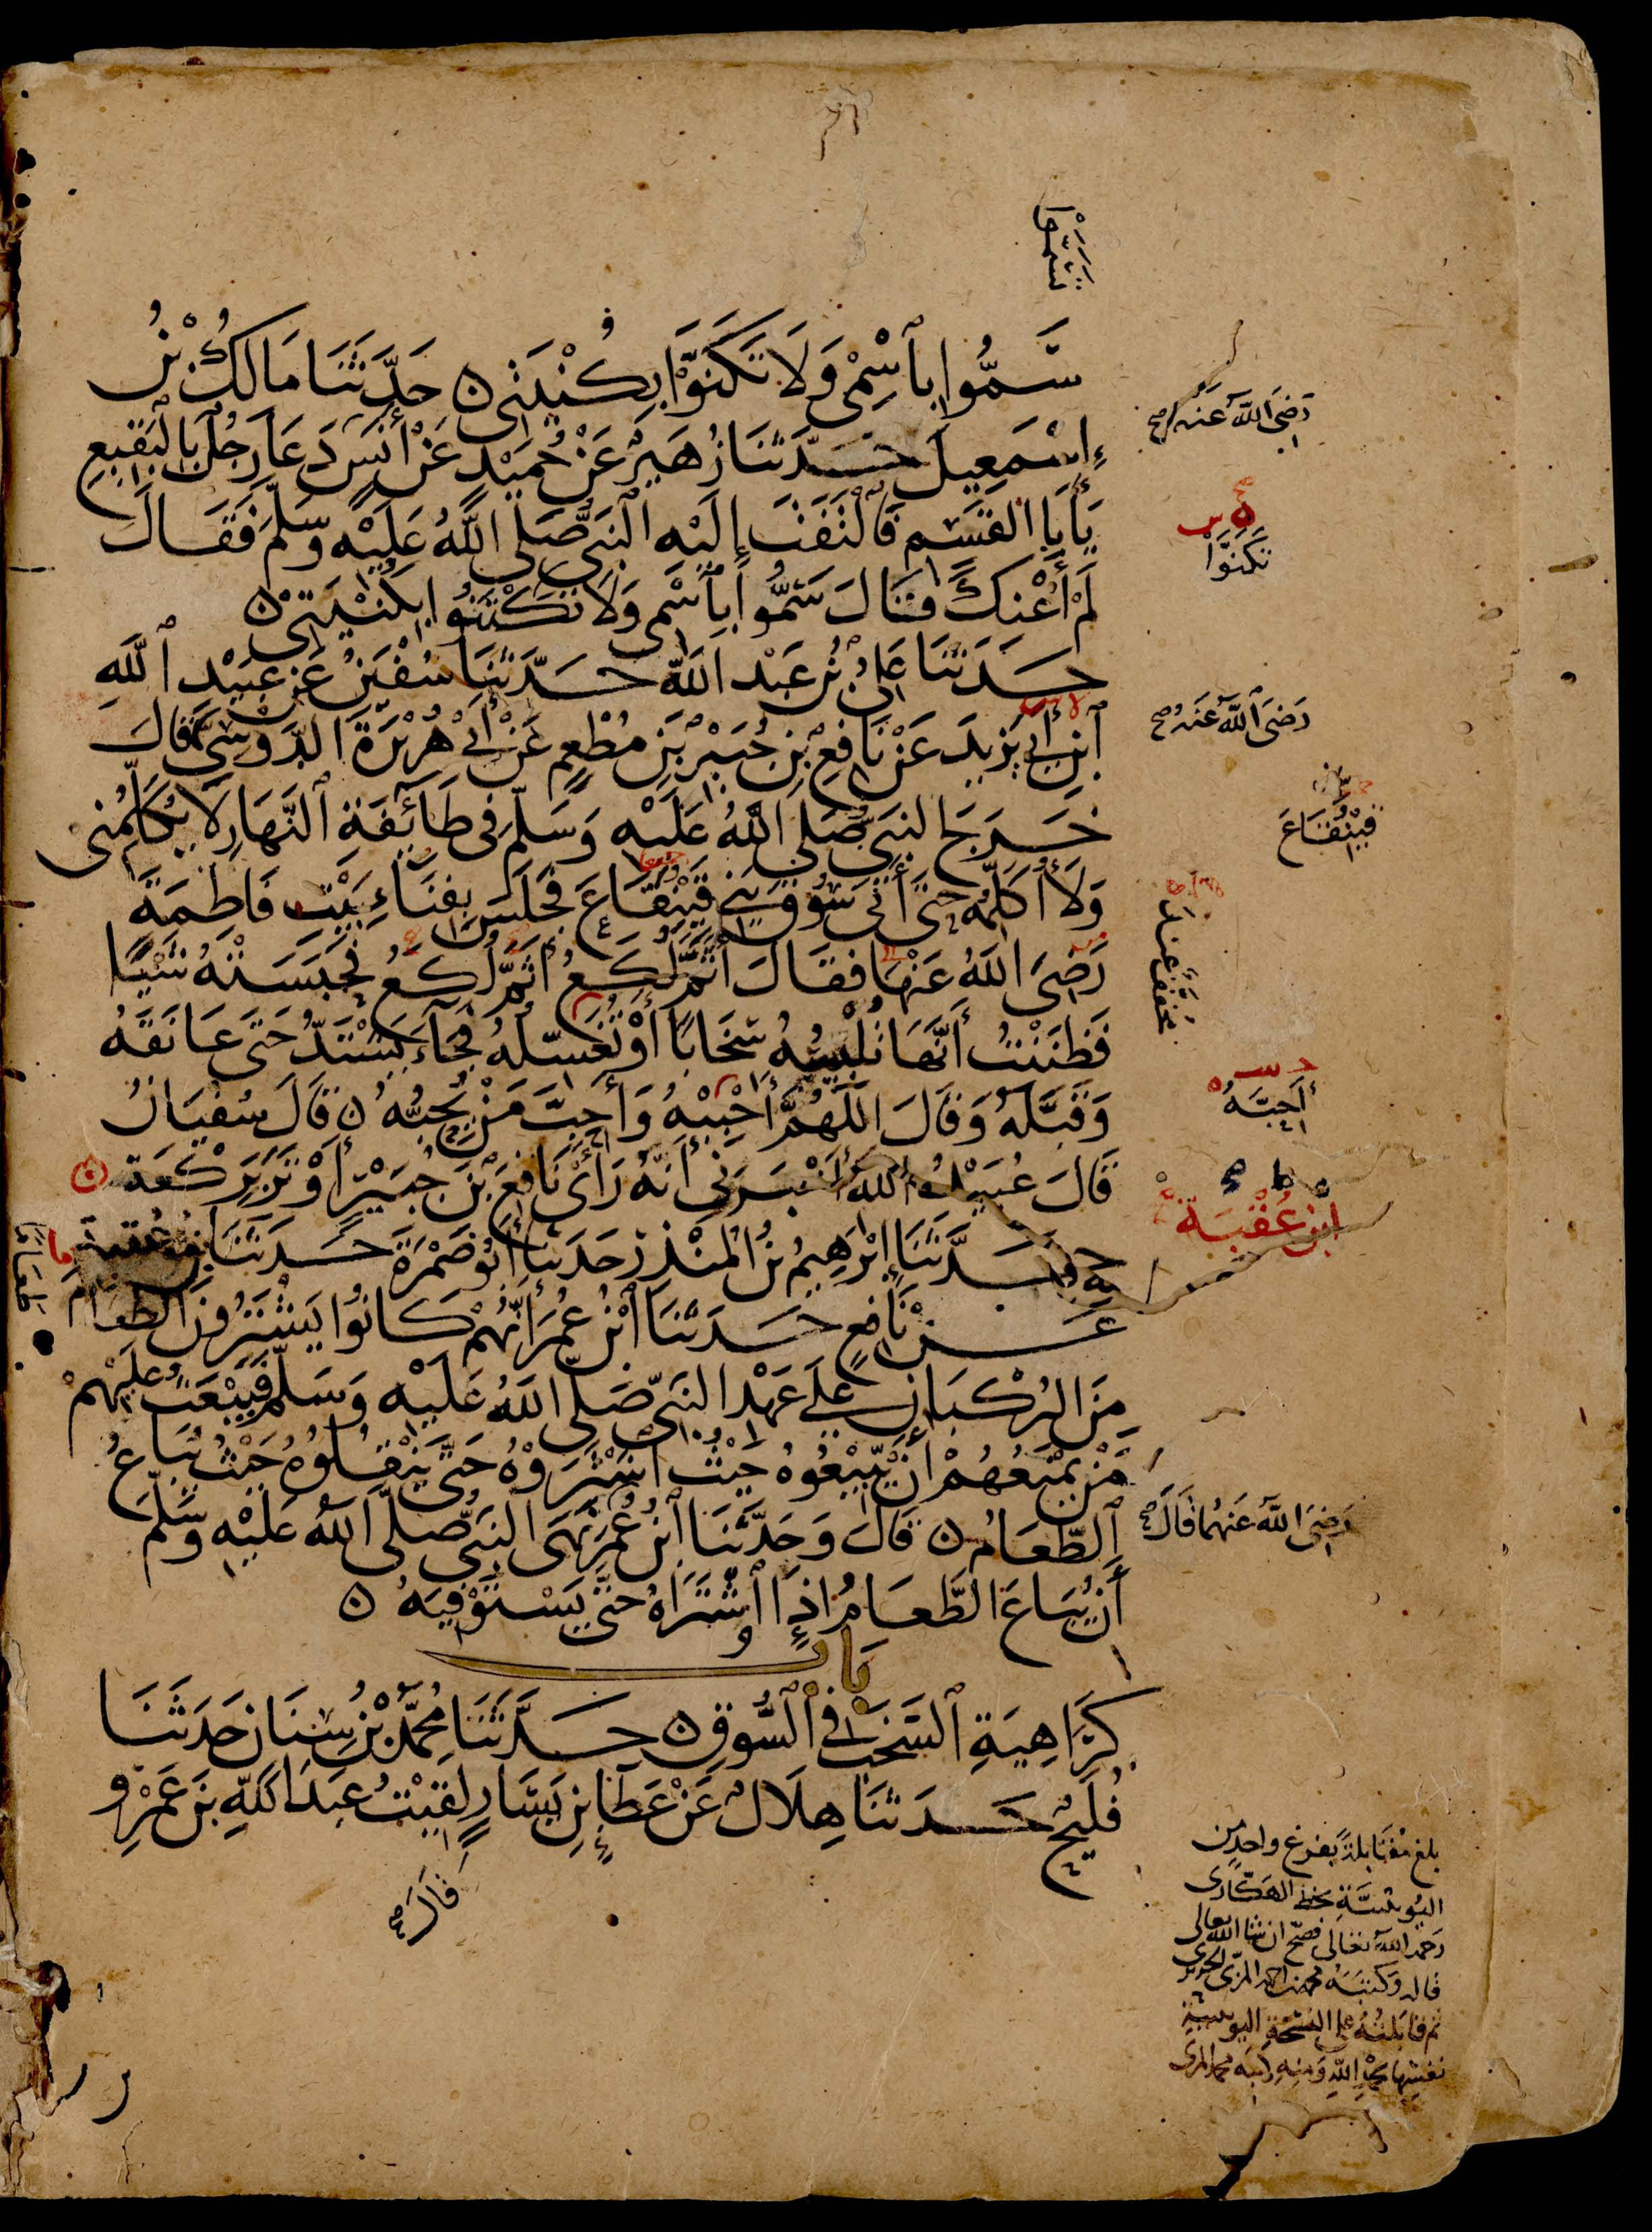 سموا
سَمُّوا بِاسْمِي وَلَا تَكَنَّوْا بِكُنْيَتِي ۝ حَدَّثَنَا مَالِكُ بْنُ
إِسْمَعِيلَ حَدَّثَنَا زُهَيْرٌ عَنْ حُمَيْدٍ عَنْ أَنَسٍ دَعَا رَجُلٌ بِالْبَقِيعِ
رَضِيَ اللَّهُ عَنْهُ صح
يَأَبَا الْقَسِمِ فَالْتَفَتَ إِلَيْهِ النَّبِيُّ صَلَّى اللَّهُ عَلَيْهِ وَسَلَّمَ فَقَالَ
لَمْ أَعْنِكَ فَقَالَ سَمُّوا بِاسْمِي وَلَا تَكْتَنُوا بِكُنْيَتِي ۝
تَكَنَّوْا
حَدَّثَنَا عَلِيُّ بْنُ عَبْدِ اللَّهِ حَدَّثَنَا سُفْيَنُ عَنْ عُبَيْدِ اللَّهِ
ابْنِ أَبِي يَزِيدَ عَنْ نَافِعِ بْنِ جُبَيْرِ بْنِ مُطْعِمٍ عَنْ أَبِي هُرَيْرَةَ الدَّوْسِيِّ قَالَ
رَضِيَ اللَّهُ عَنْهُ صح
خَرَجَ النَّبِيُّ صَلَّى اللَّهُ عَلَيْهِ وَسَلَّمَ فِي طَائِفَةِ النَّهَارِ لَا يُكَلِّمُنِي
وَلَا أُكَلِّمُهُ حَتَّى أَتَى سُوقَ بَنِي قَيْنُقَاعَ فَجَلَسَ بِفِنَاءِ بَيْتِ فَاطِمَةَ
قَيْنُقَاعَ
رَضِيَ اللَّهُ عَنْهَا فَقَالَ أَثَمَّ لُكَعُ أَثَمَّ لُكَعُ فَحَبَسَتْهُ شَيْئًا
فَظَنَنْتُ أَنَّهَا تُلْبِسُهُ سِخَابًا أَوْ تُغَسِّلُهُ فَجَاءَ يَشْتَدُّ حَتَّى عَانَقَهُ
وَقَبَّلَهُ وَقَالَ اللَّهُمَّ أَحْبِبْهُ وَأَحِبَّ مَنْ يُحِبُّهُ ۝ قَالَ سُفْيَانُ
أَحِبَّهُ
قَالَ عُبَيْدُ اللَّهِ أَخْبَرَنِي أَنَّهُ رَأَى نَافِعَ بْنَ جُبَيْرٍ أَوْتَرَ بِرَكْعَةٍ ۝
حَدَّثَنَا إِبْرَهِيمُ بْنُ الْمُنْذِرِ حَدَّثَنَا أَبُو ضَمْرَةَ حَدَّثَنَا مُوسَى بْنُ عُقْبَةَ
ابْنُ عُقْبَةَ
عَنْ نَافِعٍ حَدَّثَنَا ابْنُ عُمَرَ أَنَّهُمْ كَانُوا يَشْتَرُونَ الطَّعَامَ
طَعَامًا
مِنَ الرُّكْبَانِ عَلَى عَهْدِ النَّبِيِّ صَلَّى اللَّهُ عَلَيْهِ وَسَلَّمَ فَيَبْعَثُ عَلَيْهِمْ
مَنْ يَمْنَعُهُمْ أَنْ يَبِيعُوهُ حَيْثُ اشْتَرَوْهُ حَتَّى يَنْقُلُوهُ حَيْثُ يُبَاعُ
الطَّعَامُ ۝ قَالَ وَحَدَّثَنَا ابْنُ عُمَرَ نَهَى النَّبِيُّ صَلَّى اللَّهُ عَلَيْهِ وَسَلَّمَ
رَضِيَ اللَّهُ عَنْهُمَا قَالَ صح
أَنْ يُبَاعَ الطَّعَامُ إِذَا اشْتَرَاهُ حَتَّى يَسْتَوْفِيَهُ ۝
بَاب
كَرَاهِيَةِ السَّخَبِ فِي السُّوقِ ۝ حَدَّثَنَا مُحَمَّدُ بْنُ سِنَانٍ حَدَّثَنَا
فُلَيْحٌ حَدَّثَنَا هِلَالٌ عَنْ عَطَاءِ بْنِ يَسَارٍ لَقِيتُ عَبْدَ اللَّهِ بْنَ عَمْرٍو
قَالَ صح
بلغ مقابلة بفرع واحد من
اليونينية بخط الهكاري
رحمه الله تعالى فصح ان شا الله تعالى
قاله وكتبه محمد بن احمد المزي الحريري
ثم قابلته على النسخة اليونينية
نفسها بحمد الله ومنه كتبه محمد المزي